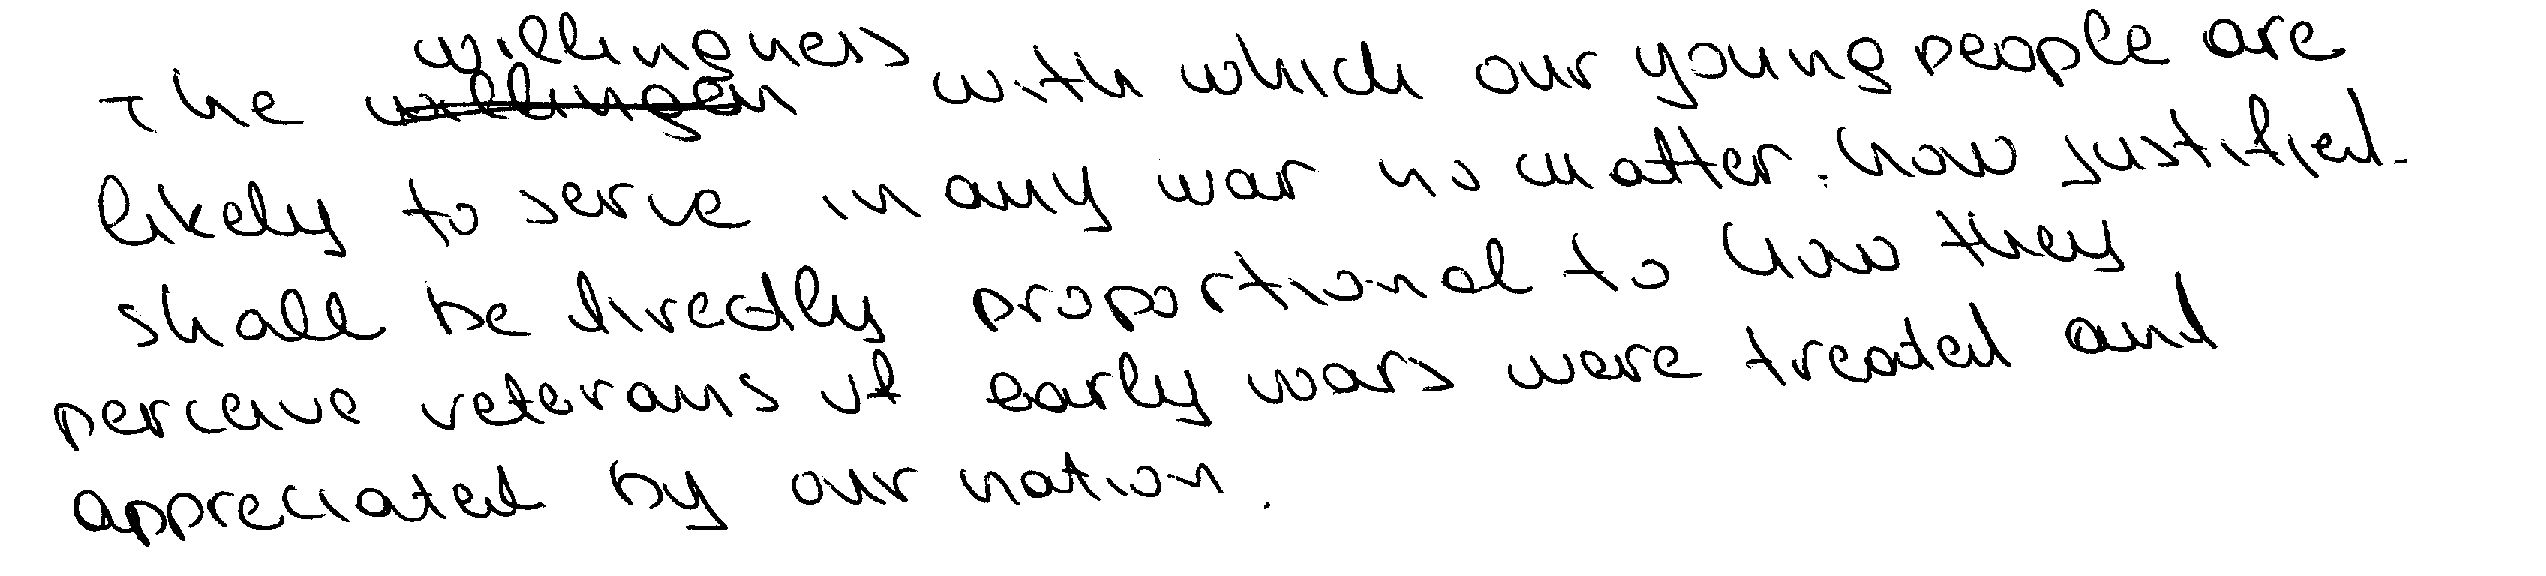 The willingness with which our young people are
likely to serve in any war no matter. how justified.
shall be directly proportional to how they
perceive veterans of early wars were treated and
appreciated by our nation.